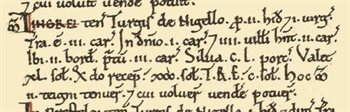 7 cui voluer vende potuit.
ꝳ INGREI ten& Turgis de Nigello. p. ii. hid 7 i. uirg.
Tra. ē. iii. car. In dnio. ii. car. 7 iiii. uilli hnt. ii. car.
Ibi. ii. bord. 7 pti. iii. car. Silua. c. l. porc. Valet
xl. sol. X do recep. xxx. sol. T.R.E. c. sol. Hoc ꝳ
ii. teigni tenuer. 7 cui uoluer uende potuer.